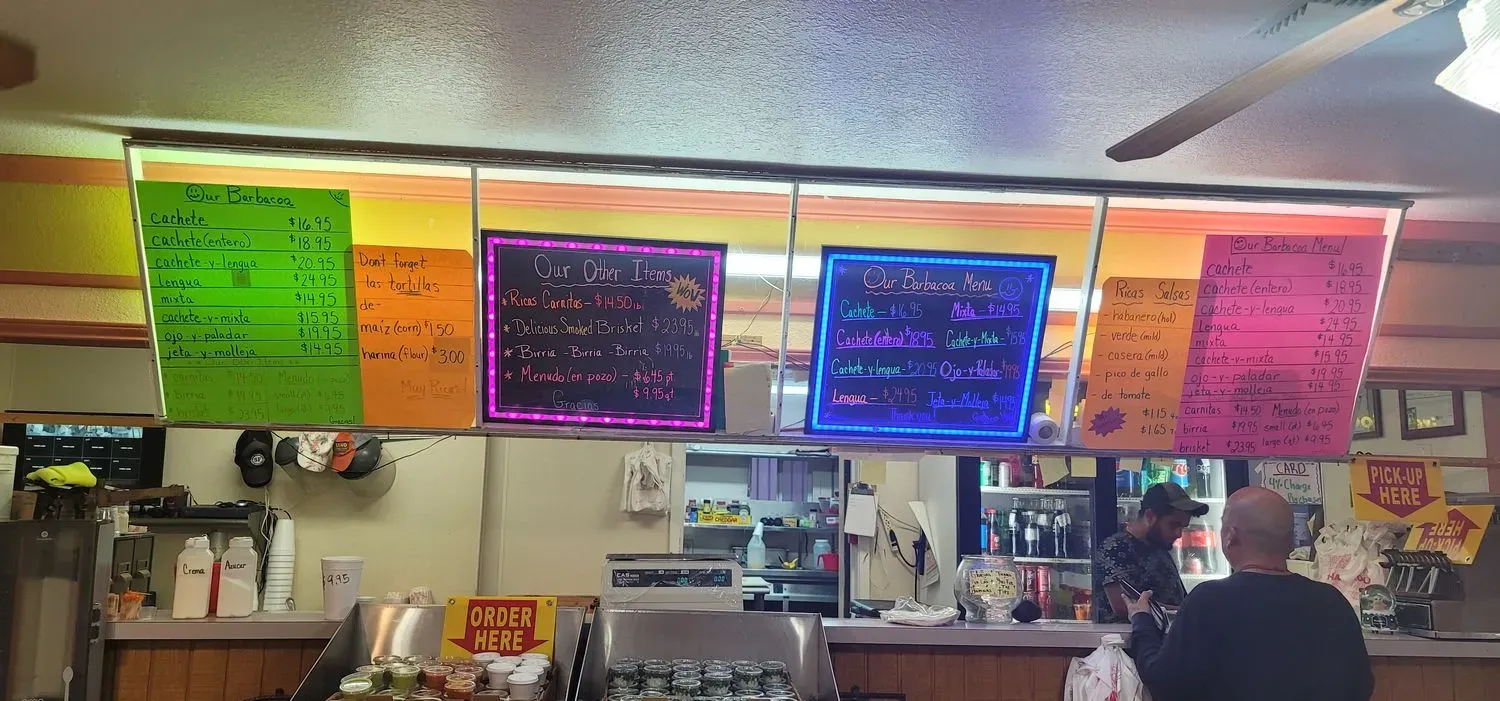 Our Barbacoa
cachete $16.95
cachete(entero) $18.95
cachete-y-lengua $20.95
lengua $24.95
mixta $14.95
cachete-y-mixta $15.95
ojo-y-paladar $19.95
jeta-y-molleja $14.95
carnitas $14.50 Menudo
birria $19.95
brisket
Don't forget
las tortillas
de-
maíz (corn) $1.50
harina (flour) $3.00
Muy Ricas!
Our Other Items
WOW
*Ricas Carnitas - $14.50 lb
* Delicious Smoked Brisket $23.95 lb
* Birria - Birria - Birria $19.95 lb
* Menudo (en pozo) - $6.45 pt
$9.95 qt
Gracias
Our Barbacoa Menu
Cachete - $16.95 Mixta - $14.95
Cachete(entero) $18.95 Cachete-y-Mixta - $15.95
Cachete-y-lengua - $20.95 Ojo-y-Paladar $19.95
Lengua - $24.95 Jeta-y-Molleja $14.95
Thank you!
Ricas Salsas
- habanero (hot)
- verde (mild)
- casera (mild)
- pico de gallo
- de tomate
$1.15
$1.65
Our Barbacoa Menu!
cachete $16.95
cachete (entero) $18.95
cachete-y-lengua $20.95
Lengua $24.95
mixta $14.95
cachete-y-mixta $15.95
ojo-y-paladar $19.95
jeta-y-molleja $14.95
carnitas $14.50 Menudo (en pozo)
birria $19.95 small (pt) $6.45
brisket $23.95 large (qt) $9.95
CARD
4% Charge
Purchase
PICK-UP
HERE
PICK-UP
HERE
Crema
Azucar
$9.95
ORDER
HERE
CAS
CHEDDAR